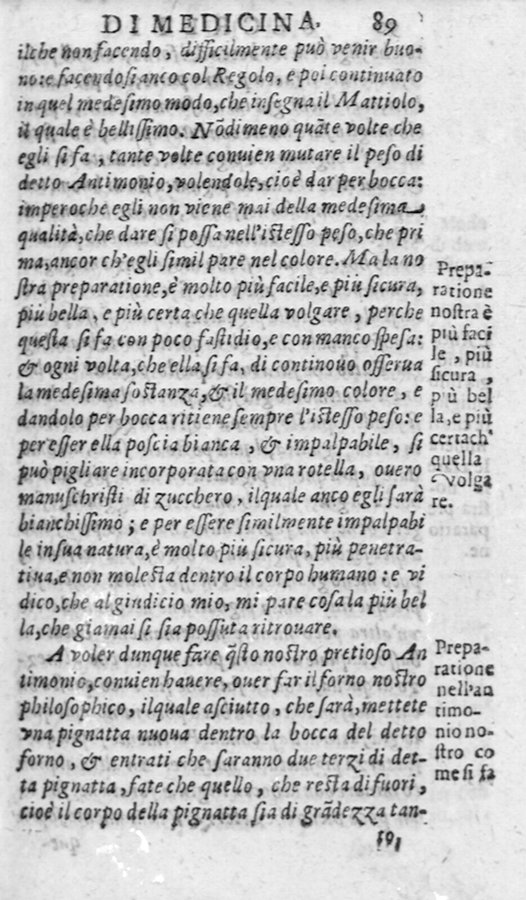 DI MEDICINA. 89
ilche non facendo, difficilmente può venir buo-
no: e facendosi anco col Regolo, e poi continuato
in quel medesimo modo, che insegna il Mattiolo,
il quale è bellissimo. Nōdimeno quāte volte che
egli si fa, tante volte conuien mutare il peso di
detto Antimonio, volendole, cioè dar per bocca:
imperoche egli non viene mai della medesima
qualità, che dare si possa nell'istesso peso, che pri
ma, ancor ch'egli simil pare nel colore. Ma la no
stra preparatione, è molto più facile, e più sicura,
più bella, e più certa che quella volgare, perche
questa si fa con poco fastidio, e con manco spesa:
& ogni volta, che ella si fa, di continouo osserua
la medesima sostanza, & il medesimo colore, e
dandolo per bocca ritiene sempre l'istesso peso: e
per esser ella poscia bianca, & impalpabile, si
può pigliare incorporata con vna rotella, ouero
manuschristi di zucchero, ilquale anco egli sarà
bianchissimo; e per essere similmente impalpabi
le in sua natura, è molto più sicura, più penetra-
tiua, e non molesta dentro il corpo humano: e vi
dico, che al giudicio mio, mi pare cosa la più bel
la, che giamai si sia possuta ritrouare.
A voler dunque fare q̄sto nostro pretioso An
timonio, conuien hauere, ouer far il forno nostro
philosophico, ilquale asciutto, che sarà, mettete
vna pignatta nuoua dentro la bocca del detto
forno, & entrati che saranno due terzi di det-
ta pignatta, fate che quello, che resta di fuori,
cioè il corpo della pignatta sia di grādezza tan-
to,
Prepa-
ratione
nostra è
più faci
le, più
sicura,
più bel
la, e più
certa ch'
quella
volga
re.
Prepa-
ratione
nell'an
timo-
nio no-
stro co
me si fa